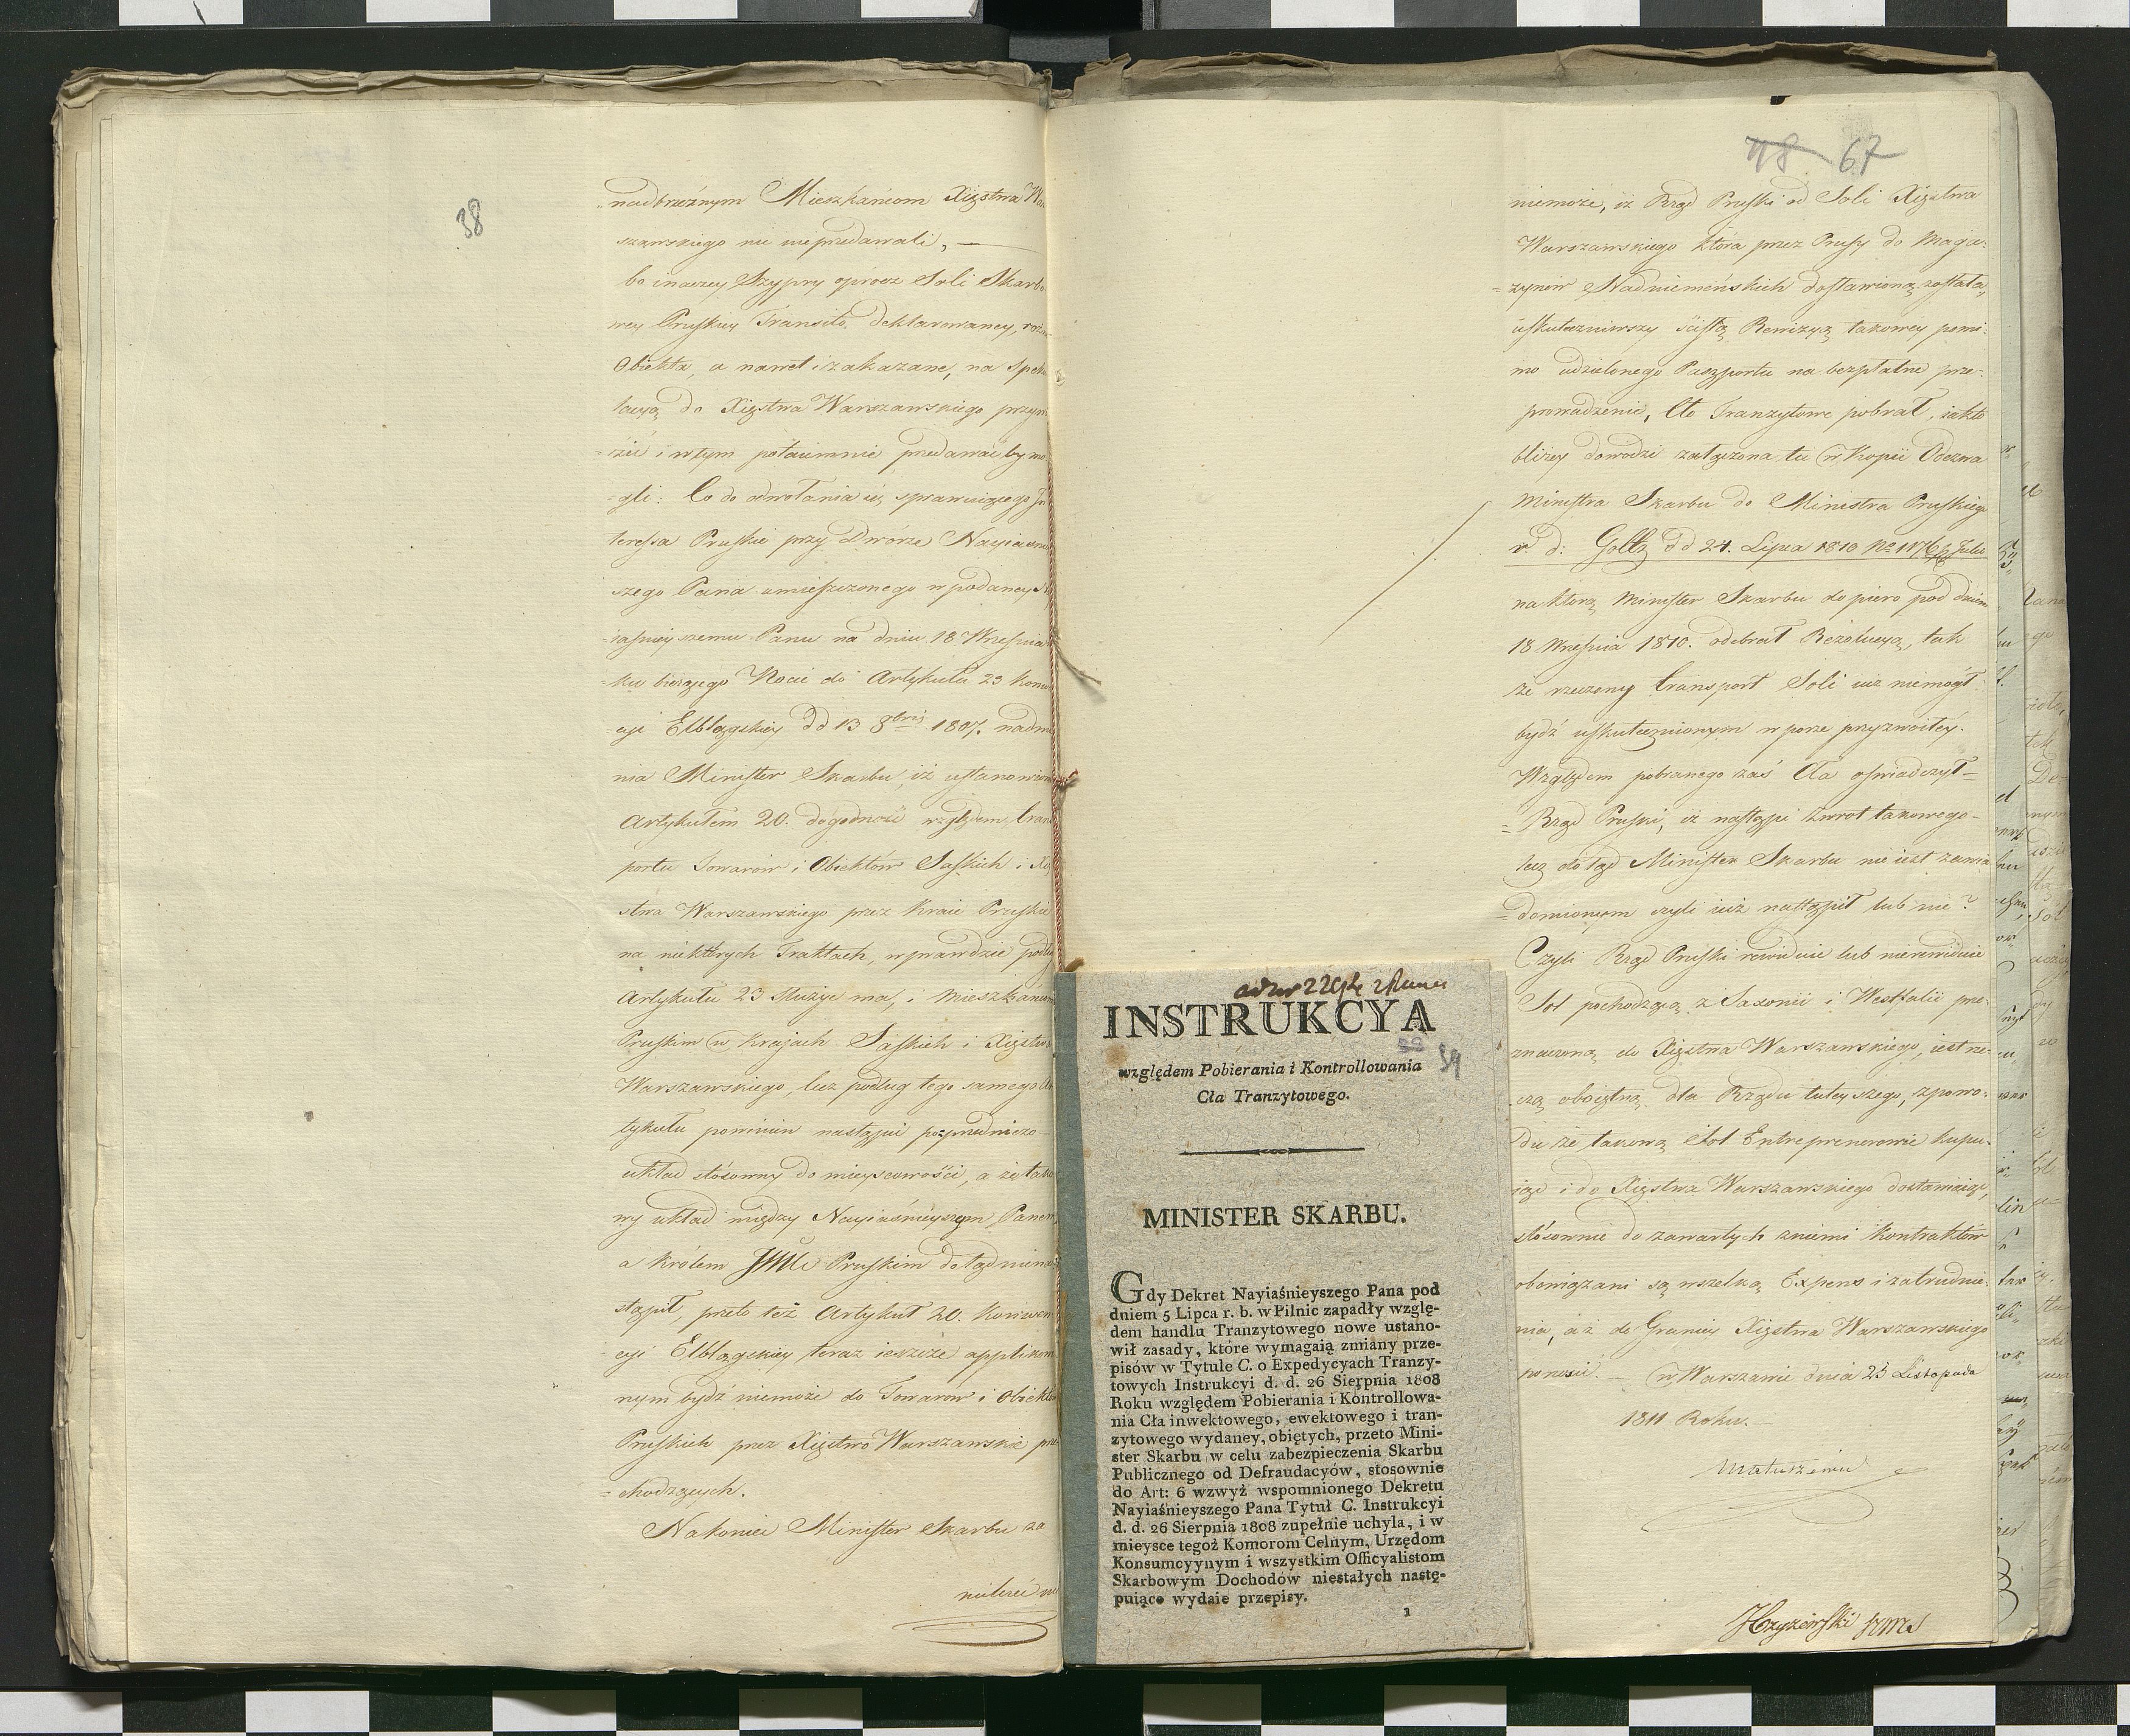 38
nadbrzeżnym Mieszkańcom Xięstwa
szawskiego nie nieprzedawali, —
bo inaczey Szypry oprocz Soli
wey Pruskiey Transito deklarowaney,
Obiekta, a nawet i zakazane, na
do Xięstwa Warszawskiego
i w tym potaiemnie przedawać by
gli: Co do odwołania się sprawuiącego
teressa Pruskie przy Dworze
szego Pana umieszczonego w podaney
iaśnieyszemu Panu na dniu 18 Września
ku bieżącego Nocie do Artykułu 23
cyi Elblągskiey dd 13 8bris 1807.
nia Minister Skarbu, iż ustanowiona
Artykułem 20. dogodność względem
portu Towarów i Obiektów Saskich i
stwa Warszawskiego przez Kraie Pruskie
na niektórych Traktach, wprawdzie
Artykułu 23 służyć ma, i Mieszkańcom
Pruskim w Krajach Saskich i
Warszawskiego, lecz podług tego samego
tykułu powinien nastąpić poprzedniczo
układ stósowny do mieyscowości, a że
wy układ między Nayiaśnieyszym Panem
a Królem JMci Pruskim dotąd
stąpił, przeto też Artykuł 20.
cyi Elblągskiey teraz ieszcze
nym bydź niemoże do Towarów i
Pruskich przez Xięstwo Warszawskie
chodzących.
Nakoniec Minister Skarbu za
milczeć
48 67
niemoże, iż Rząd Pruski od Soli Xięstwa
Warszawskiego która przez Prusy do Maga-
zynów Nadniemeńskich dostawioną została,
uskuteczniwszy ścisłą Rewizyą takowey pomi-
mo udzielonego Paszportu na bezpłatne prze-
prowadzenie, Cło Tranzytowe pobrał, iakto
bliżey dowodzi załączona tu w Kopii Odezwa
Ministra Skarbu do Ministra Pruskiego
v d: Goltz dd 24. Lipca 1810
na którą Minister Skarbu dopiero pod dniem
18 Września 1810. odebrał Rezolucyą, tak
że rzeczony transport Soli iuż niemógł
bydź uskutecznionym w porze przyzwoitey.
Względem pobranego zaś Cła oświadczył
Rząd Pruski, iż nastąpi zwrot takowego
lecz dotąd Minister Skarbu nie iest zawia-
domionym czyli iuż nastąpił lub nie?
Czyli Rząd Pruski rewiduie lub nierewiduie
Sól pochodzącą z Saxonii i Westfalii prze-
znaczoną do Xięstwa Warszawskiego, iest rze-
czą oboiętną dla Rządu tuteyszego, z powo-
du że takową Sól Entreprenerowie kupu-
iąc i do Xięstwa Warszawskiego dostawiaiąc,
stósownie do zawartych z niemi Kontraktów
obowiązani są wszelką Expens i zatrudnie-
nia, aż do Granicy Xięstwa Warszawskiego
ponosić. — w Warszawie dnia 23 Listopada
1811 Roku. —
Matuszewic
INSTRUKCYA
39
względem Pobierania i Kontrollowania
Cła Tranzytowego.
MINISTER SKARBU.
Gdy Dekret Nayiaśnieyszego Pana pod
dniem 5 Lipca r. b. w Pilnic zapadły wzglę-
dem handlu Tranzytowego nowe ustano-
wił zasady, które wymagaią zmiany prze-
pisów w Tytule C. o Expedycyach Tranzy-
towych Instrukcyi d. d. 26 Sierpnia 1808
Roku względem Pobierania i Kontrollowa-
nia Cła inwektowego, ewektowego i tran-
zytowego wydaney, obiętych, przeto Mini-
ster Skarbu w celu zabezpieczenia Skarbu
Publicznego od Defraudacyów, stosownie
do Art: 6 wzwyż wspomnionego Dekretu
Nayiaśnieyszego Pana Tytuł C. Instrukcyi
d. d. 26 Sierpnia 1808 zupełnie uchyla, i w
mieysce tegoż Komorom Celnym, Urzędom
Konsumcyynym i wszystkim Officyalistom
Skarbowym Dochodów niestałych nastę-
puiące wydaie przepisy.
1